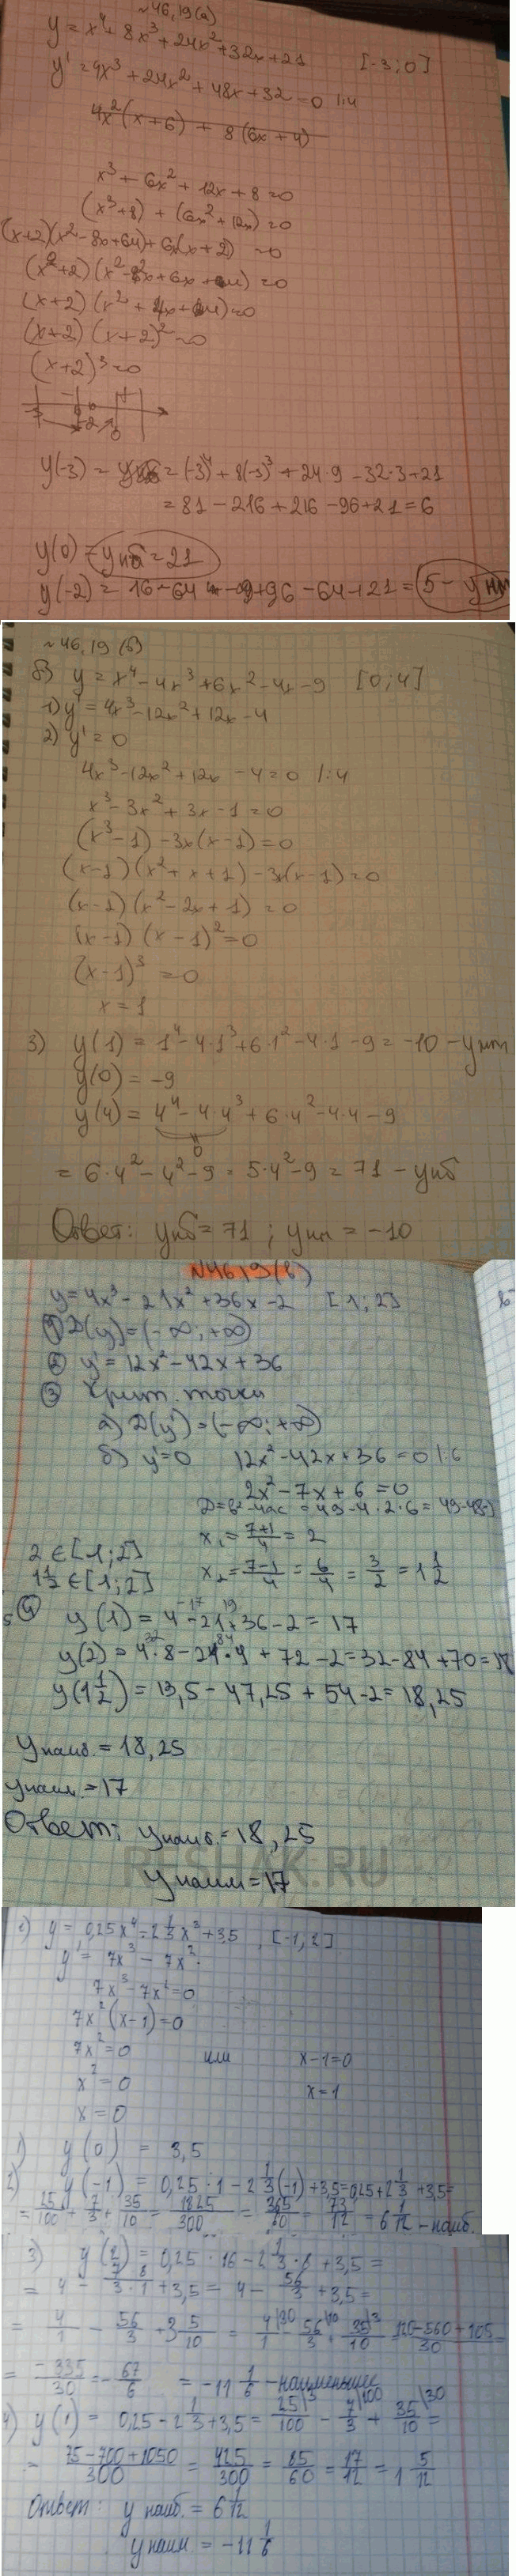 №46,19(а)
y = x⁴ + 8x³ + 24x² + 32x + 21 [-3; 0]
y' = 4x³ + 24x² + 48x + 32 = 0 |:4
4x²(x + 6) + 8(6x + 4)
x³ + 6x² + 12x + 8 = 0
(x³ + 8) + (6x² + 12x) = 0
(x+2)(x² - 8x + 64) + 6x(x + 2) = 0
(x+2)(x² + 4x + 4) = 0
(x+2)(x+2)² = 0
(x+2)³ = 0
y(-3) = (-3)⁴ + 8(-3)³ + 24·9 - 32·3 + 21
= 81 - 216 + 216 - 96 + 21 = 6
y(0) = yнб = 21
y(-2) = 16 - 64 + 96 - 64 + 21 = 5 - yнм
№46,19 (б)
б) y = x⁴ - 4x³ + 6x² - 4x - 9 [0; 4]
1) y' = 4x³ - 12x² + 12x - 4
2) y' = 0
4x³ - 12x² + 12x - 4 = 0 |:4
x³ - 3x² + 3x - 1 = 0
(x³ - 1) - 3x(x - 1) = 0
(x-1)(x² + x + 1) - 3x(x-1) = 0
(x-1)(x² - 2x + 1) = 0
(x-1)(x-1)² = 0
(x-1)³ = 0
x = 1
3) y(1) = 1⁴ - 4·1³ + 6·1² - 4·1 - 9 = -10 - yнм
y(0) = -9
y(4) = 4⁴ - 4·4³ + 6·4² - 4·4 - 9
0
= 6·4² - 4² - 9 = 5·4² - 9 = 71 - yнб
Ответ: yнб = 71; yнм = -10
№46.19(в)
y = 4x³ - 21x² + 36x - 2 [1; 2]
① D(y) = (-∞; +∞)
② y' = 12x² - 42x + 36
③ Крит. точки
а) D(y') = (-∞; +∞)
б) y' = 0 12x² - 42x + 36 = 0 |:6
2x² - 7x + 6 = 0
D = b² - 4ac = 49 - 4·2·6 = 49-48=1
x₁ = 7+1/4 = 2
2 ∈ [1; 2]
x₂ = 7-1/4 = 6/4 = 3/2 = 1 1/2
1 1/2 ∈ [1; 2]
④ y(1) = 4 - 21 + 36 - 2 = 17
y(2) = 4·8 - 21·4 + 72 - 2 = 32 - 84 + 70 = 18
y(1 1/2) = 13,5 - 47,25 + 54 - 2 = 18,25
yнаиб. = 18,25
yнаим. = 17
Ответ: yнаиб. = 18,25
RESHAK.RU
yнаим = 17
г) y = 0,25x⁴ - 2 1/3 x³ + 3,5, [-1, 2]
y' = 7x³ - 7x²
7x³ - 7x² = 0
7x²(x-1) = 0
7x² = 0 или x-1=0
x² = 0 x = 1
x = 0
1) y(0) = 3,5
2) y(-1) = 0,25·1 - 2 1/3(-1) + 3,5 = 0,25 + 2 1/3 + 3,5 =
= 25/100 + 7/3 + 35/10 = 1825/300 = 365/60 = 73/12 = 6 1/12 - наиб.
3) y(2) = 0,25·16 - 2 1/3·8 + 3,5 =
= 4 - 7·8/3·1 + 3,5 = 4 - 56/3 + 3,5 =
= 4/1 - 56/3 + 3 5/10 = 4/1 - 56/3 + 35/10 = 120-560+105/30
= -335/30 = -67/6 = -11 1/6 - наименьшее
4) y(1) = 0,25 - 2 1/3 + 3,5 = 25/100 - 7/3 + 35/10 =
= 75-700+1050/300 = 425/300 = 85/60 = 17/12 = 1 5/12
Ответ: y наиб. = 6 1/12
y наим. = -11 1/6